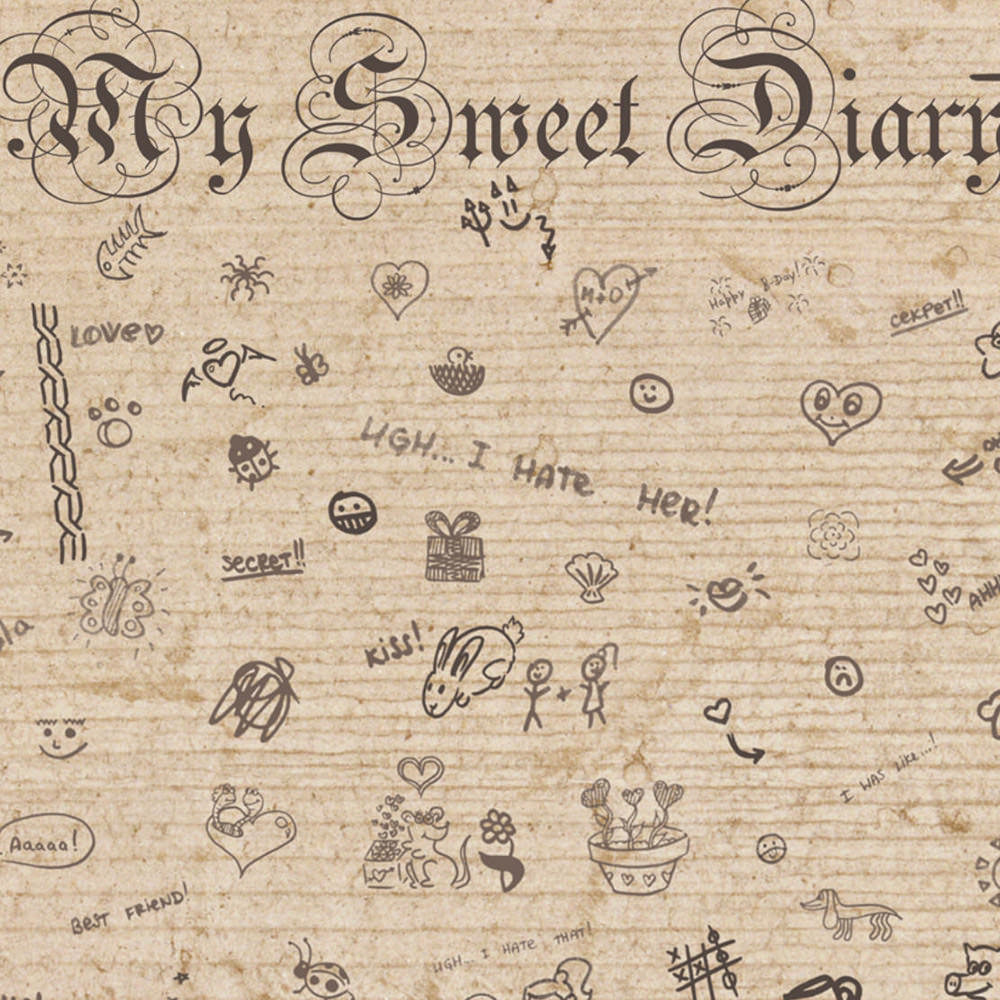 My Sweet Diary
Happy B-Day!
M+O
секрет!!
Love
UGH... I HATE HER!
secret!!
kiss!
I WAS like...!
Aaaaa!
BEST FRIEND!
UGH... I HATE THAT!